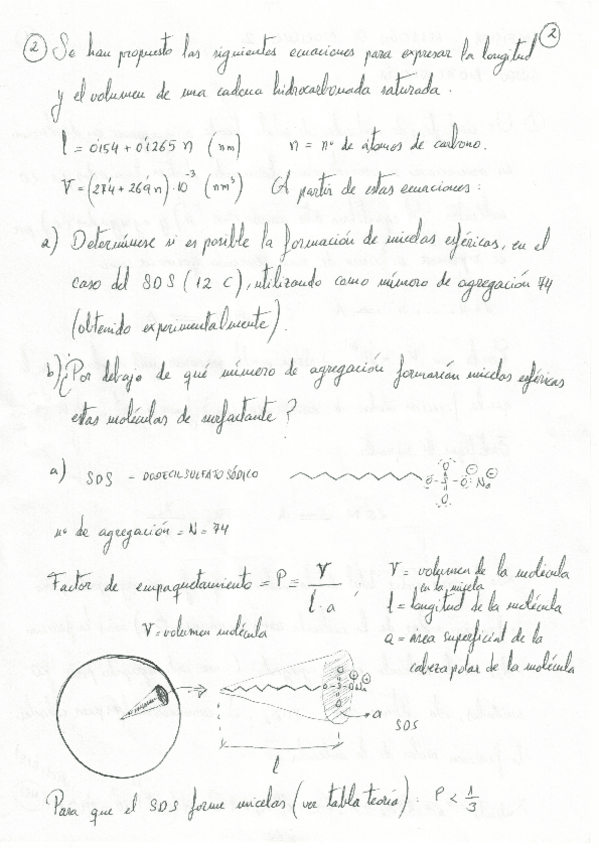 2
2 Se han propuesto las siguientes ecuaciones para expresar la longitud
y el volumen de una cadena hidrocarbonada saturada.
l = 0'154 + 0'1265 n (nm) n = nº de átomos de carbono.
V = (27'4 + 26'9 n)·10⁻³ (nm³) A partir de estas ecuaciones:
a) Determínese si es posible la formación de micelas esféricas, en el
caso del SDS (12 C), utilizando como número de agregación 74
(obtenido experimentalmente).
b) ¿Por debajo de qué número de agregación formarían micelas esféricas
estas moléculas de surfactante?
a) SDS - DODECILSULFATO SÓDICO O-S-O⊖ Na⊕
O
O
nº de agregación = N = 74
Factor de empaquetamiento = P = V / l·a ; V = volumen de la molécula
en la micela
l = longitud de la molécula
V = volumen molécula
a = área superficial de la
cabeza polar de la molécula
O-S-O Na
O
O
a
SDS
l
Para que el SDS forme micelas (ver tabla teoría): P < 1/3